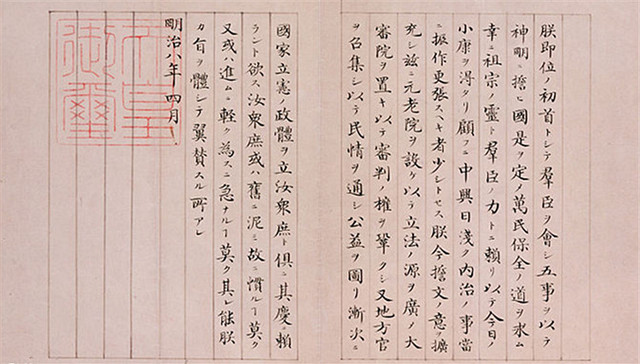 朕即位ノ初首トシテ群臣ヲ會シ五事ヲ以テ
神明ニ誓ヒ國是ヲ定メ萬民保全ノ道ヲ求ム
幸ニ祖宗ノ靈ト群臣ノ力トニ賴リ以テ今日ノ
小康ヲ得タリ顧フニ中興日淺ク内治ノ事當
ニ振作更張スヘキ者少シトセス朕今誓文ノ意ヲ擴
充シ茲ニ元老院ヲ設ケ以テ立法ノ源ヲ廣メ大
審院ヲ置キ以テ審判ノ權ヲ鞏クシ又地方官
ヲ召集シ以テ民情ヲ通シ公益ヲ圖リ漸次ニ
國家立憲ノ政體ヲ立汝衆庶ト俱ニ其慶ニ賴
ラント欲ス汝衆庶或ハ舊ニ泥ミ故ニ慣ルヽ莫ク
又或ハ進ムニ輕ク為スニ急ナルヽ莫ク其レ能朕
カ旨ヲ體シテ翼贊スル所アレ
明治八年四月
天皇御璽